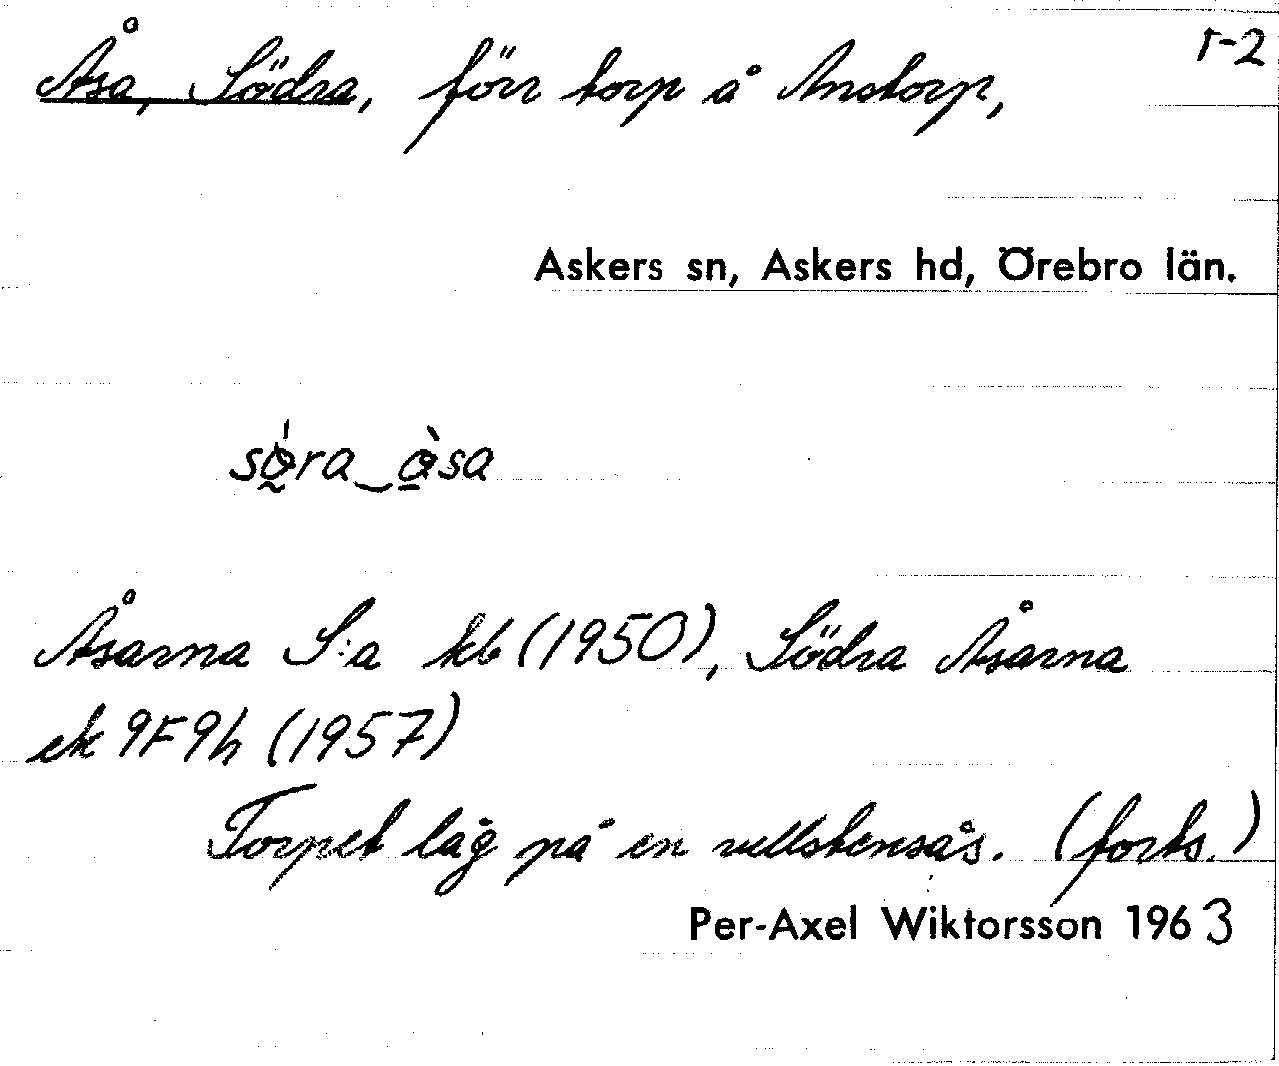 Åsa, Södra, förr torp å Anstorp, r-2
Askers sn, Askers hd, Örebro län.
sø̀ra‿òsa
Åsarna S:a kb (1950), Södra Åsarna
ek 9F9h (1957)
Torpet låg på en rullstensås. (forts.)
Per-Axel Wiktorsson 1963